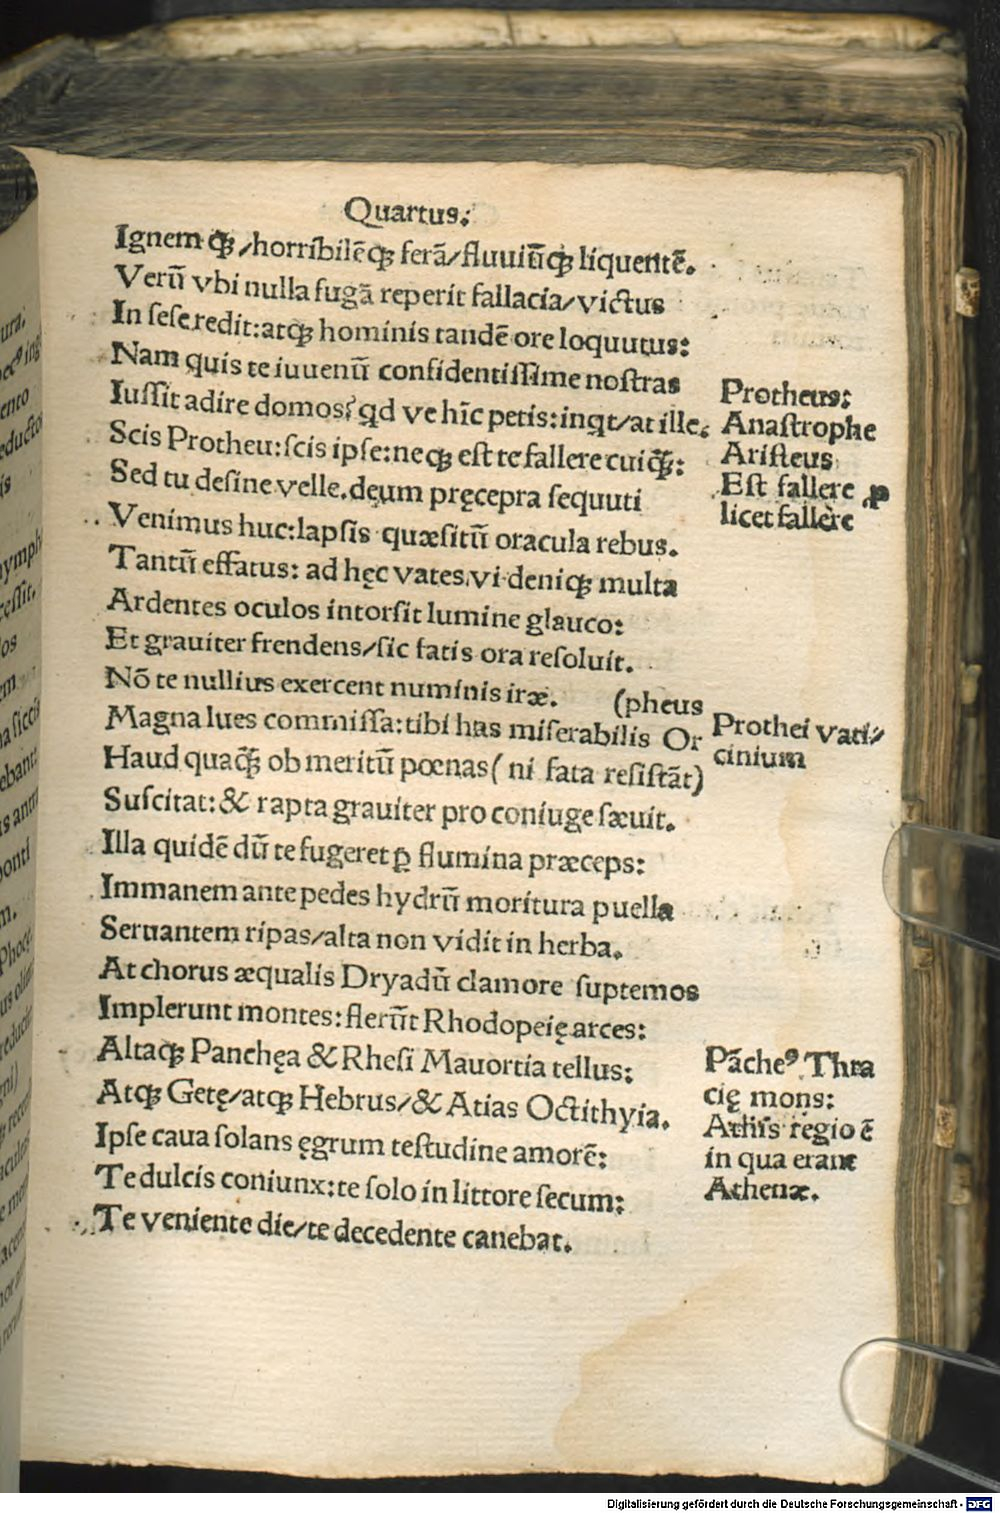 Quartus:
Ignem qꝫ/horribilēqꝫ ferā/fluuiūqꝫ liquentē.
Verū vbi nulla fugā reperit fallacia/victus
In sese redit:atqꝫ hominis tandē ore loquutus:
Nam quis te iuuenū confidentissime nostras
Iussit adire domos?qd ve hīc petis:inqt/at ille.
Scis Protheu:scis ipse:neqꝫ est te fallere cuiq̄ꝫ:
Sed tu desine velle.deum pręcepra sequuti
Venimus huc:lapsis quæsitū oracula rebus.
Tantū effatus: ad hęc vates.vi deniqꝫ multa
Ardentes oculos intorsit lumine glauco:
Et grauiter frendens/sic fatis ora resoluit.
Nō te nullius exercent numinis iræ. (pheus
Magna lues commissa:tibi has miserabilis Or
Haud quaq̄ꝫ ob meritū pœnas( ni fata resistāt)
Suscitat:& rapta grauiter pro coniuge sæuit.
Illa quidē dū te fugeret ꝑ flumina præceps:
Immanem ante pedes hydrū moritura puella
Seruantem ripas/alta non vidit in herba.
At chorus æqualis Dryadū clamore supremos
Implerunt montes:flerūt Rhodopeię arces:
Altaqꝫ Panchęa & Rhesi Mauortia tellus:
Atqꝫ Getę/atqꝫ Hebrus/& Atias Octithyia.
Ipse caua solans ęgrum testudine amorē:
Te dulcis coniunx:te solo in littore secum:
Te veniente die/te decedente canebat.
Protheus:
Anastrophe
Aristeus
Est fallere ꝓ
licet fallere
Prothei vati/
cinium
Pācheꝰ Thra
cię mons:
Attis regio ē
in qua erant
Athenæ.
Digitalisierung gefördert durch die Deutsche Forschungsgemeinschaft - DFG